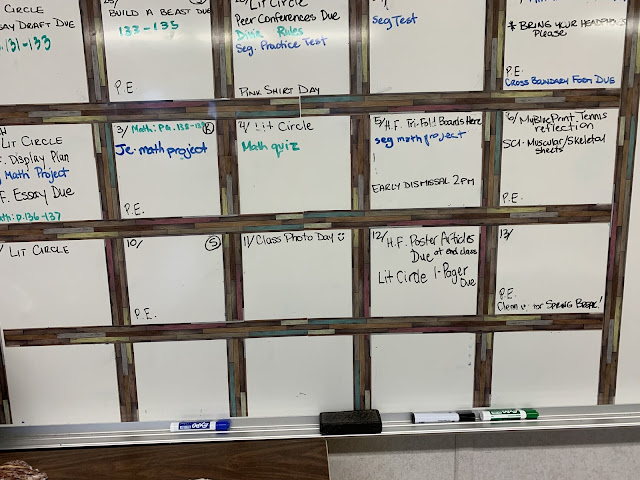 CIRCLE
DRAFT DUE
131-133
BUILD A BEAST DUE
133-135
P.E.
LIT CIRCLE
PEER CONFERENCES DUE
Dixie Rules
Seg. Practice Test
PINK SHIRT DAY
Seg Test
* BRING YOUR
Please
P.E.
CROSS BOUNDARY FORM DUE
LIT CIRCLE
F. DISPLAY PLAN
Math Project
F. ESSAY DUE
Math: p. 136-137
3/ Math: PG.
K
Je. math project
P.E.
4/ Lit Circle
Math quiz
5/ H.F. Tri-Fold Boards Here
seg math project
EARLY DISMISSAL 2PM
6/ MyBluePrint Tennis
reflection
SCI - Muscular/Skeletal
sheets
P.E.
LIT CIRCLE
10/
S
P.E.
11/ Class Photo Day
12/ H.F. Poster Articles
Due at end class
Lit Circle 1-Pager
Due
13/
P.E.
Clean up for SPRING BREAK!
EXPO
EXPO